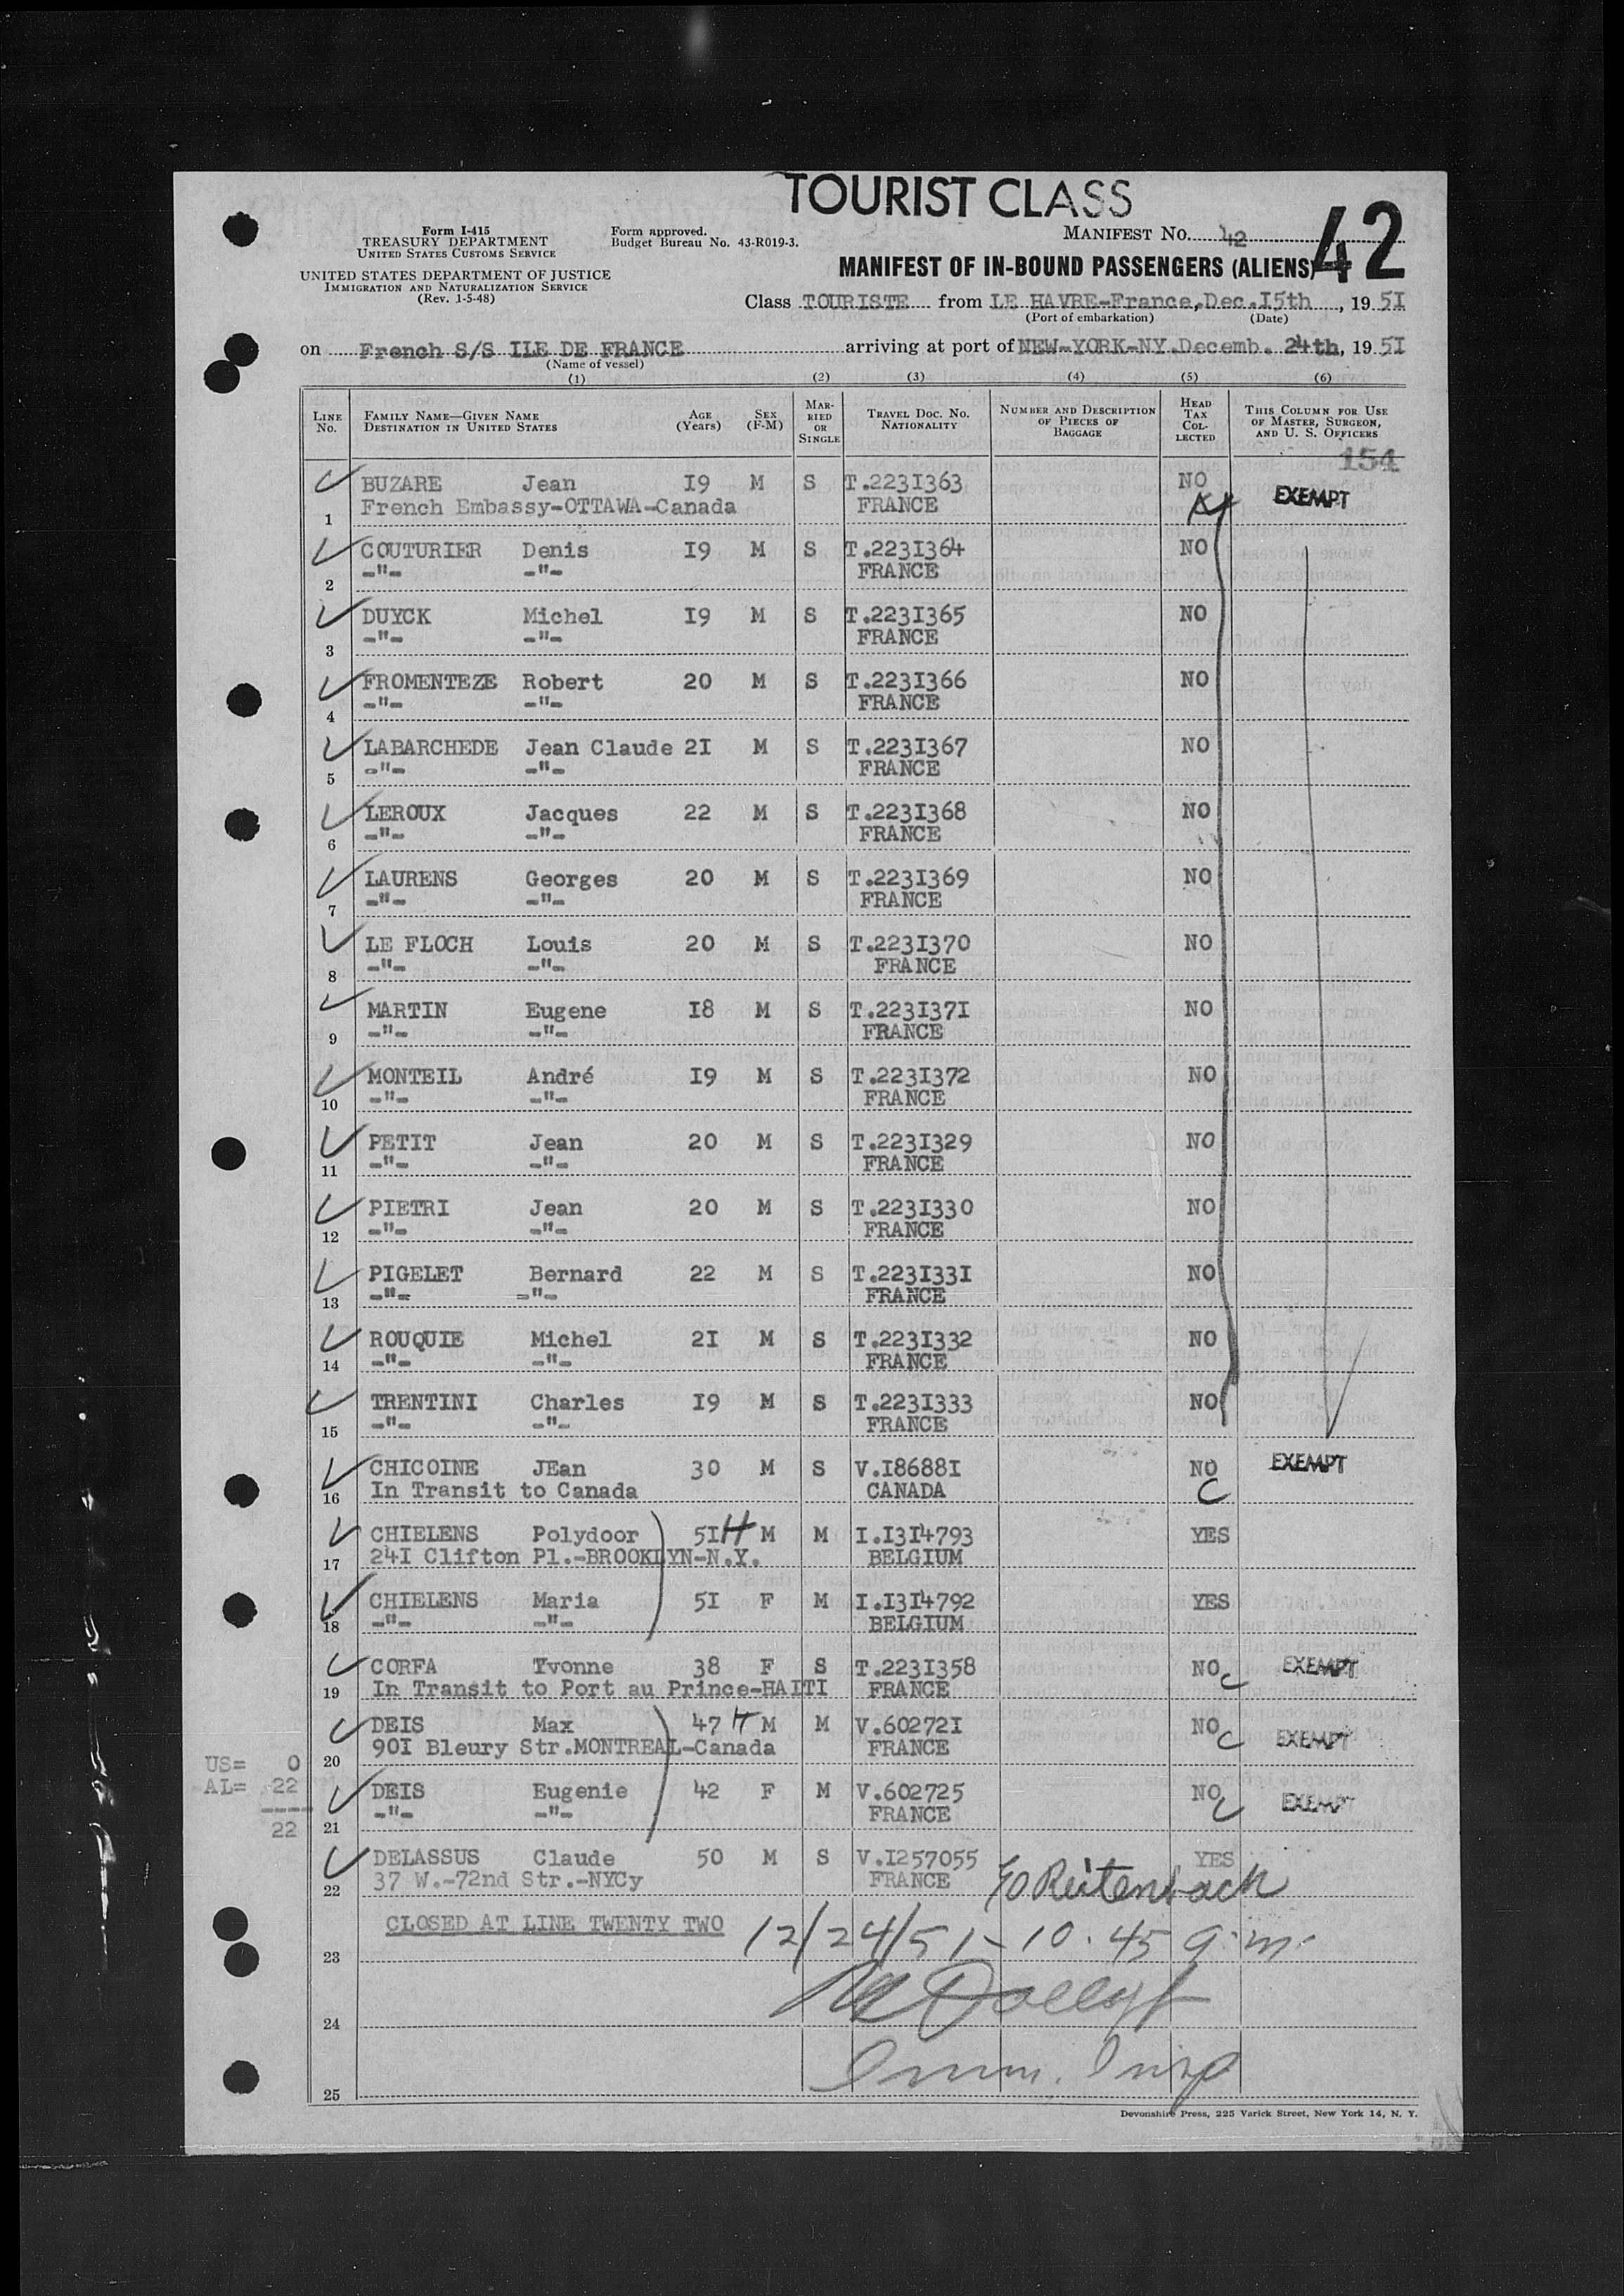 TOURIST CLASS
Form I-415
TREASURY DEPARTMENT
UNITED STATES CUSTOMS SERVICE
UNITED STATES DEPARTMENT OF JUSTICE
IMMIGRATION AND NATURALIZATION SERVICE
(Rev. 1-5-48)
Form approved.
Budget Bureau No. 43-R019-3.
MANIFEST No. 42
42
MANIFEST OF IN-BOUND PASSENGERS (ALIENS)
Class TOURISTE from LE HAVRE-France, Dec.I5th, 19 5I
(Port of embarkation) (Date)
on French S/S ILE DE FRANCE arriving at port of NEW-YORK-NY.Decemb. 24th, 19 5I
(Name of vessel)
(1) (2) (3) (4) (5) (6)
LINE No. FAMILY NAME—GIVEN NAME DESTINATION IN UNITED STATES AGE (Years) SEX (F-M) MARRIED OR SINGLE TRAVEL DOC. NO. NATIONALITY NUMBER AND DESCRIPTION OF PIECES OF BAGGAGE HEAD TAX COLLECTED THIS COLUMN FOR USE OF MASTER, SURGEON, AND U. S. OFFICERS
154
BUZARE Jean I9 M S T.223I363 NO EXEMPT
1 French Embassy-OTTAWA-Canada FRANCE
COUTURIER Denis I9 M S T.223I364 NO
2 -"- -"- FRANCE
DUYCK Michel I9 M S T.223I365 NO
3 -"- -"- FRANCE
FROMENTEZE Robert 20 M S T.223I366 NO
4 -"- -"- FRANCE
LABARCHEDE Jean Claude 2I M S T.223I367 NO
5 -"- -"- FRANCE
LEROUX Jacques 22 M S T.223I368 NO
6 -"- -"- FRANCE
LAURENS Georges 20 M S T.223I369 NO
7 -"- -"- FRANCE
LE FLOCH Louis 20 M S T.223I370 NO
8 -"- -"- FRANCE
MARTIN Eugene I8 M S T.223I37I NO
9 -"- -"- FRANCE
MONTEIL André I9 M S T.223I372 NO
10 -"- -"- FRANCE
PETIT Jean 20 M S T.223I329 NO
11 -"- -"- FRANCE
PIETRI Jean 20 M S T.223I330 NO
12 -"- -"- FRANCE
PIGELET Bernard 22 M S T.223I33I NO
13 -"- -"- FRANCE
ROUQUIE Michel 2I M S T.223I332 NO
14 -"- -"- FRANCE
TRENTINI Charles I9 M S T.223I333 NO
15 -"- -"- FRANCE
CHICOINE JEan 30 M S V.I8688I NO C EXEMPT
16 In Transit to Canada CANADA
CHIELENS Polydoor 5I H M M I.I3I4793 YES
17 24I Clifton Pl.-BROOKLYN-N.Y. BELGIUM
CHIELENS Maria 5I F M I.I3I4792 YES
18 -"- -"- BELGIUM
CORFA Yvonne 38 F S T.223I358 NO C EXEMPT
19 In Transit to Port au Prince-HAITI FRANCE
DEIS Max 47 H M M V.60272I NO C EXEMPT
20 90I Bleury Str.MONTREAL-Canada FRANCE
DEIS Eugenie 42 F M V.602725 NO C EXEMPT
21 -"- -"- FRANCE
US= 0
AL= 22
22
DELASSUS Claude 50 M S V.I257055 YES
22 37 W.-72nd Str.-NYCy FRANCE c/o Reitenbach
23 CLOSED AT LINE TWENTY TWO 12/24/51 - 10.45 a.m.
24
Imm. Insp
25
Devonshire Press, 225 Varick Street, New York 14, N. Y.